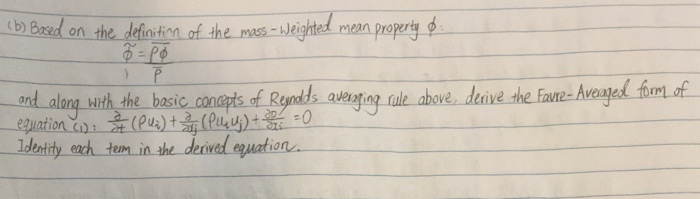 (b) Based on the definition of the mass-weighted mean property ϕ.
ϕ̃ = \overline{ρϕ} / \overline{ρ}
and along with the basic concepts of Reynolds averaging rule above, derive the Favre-Averaged form of
equation (1): ∂/∂t (ρuᵢ) + ∂/∂xⱼ (ρuᵢuⱼ) + ∂p/∂xᵢ = 0
Identity each term in the derived equation.